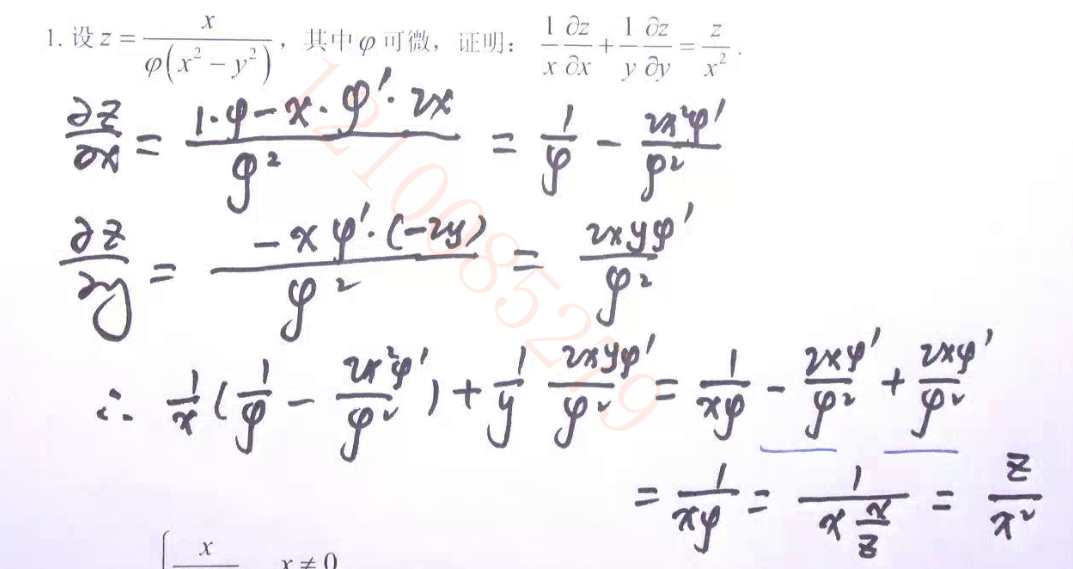 1. 设 z = x / φ(x² − y²) , 其中 φ 可微, 证明: 1/x ∂z/∂x + 1/y ∂z/∂y = z/x² .
∂z/∂x = (1·φ − x·φ′·2x) / φ² = 1/φ − 2x²φ′/φ²
∂z/∂y = −xφ′·(−2y) / φ² = 2xyφ′/φ²
∴ 1/x (1/φ − 2x²φ′/φ²) + 1/y 2xyφ′/φ² = 1/(xφ) − 2xφ′/φ² + 2xφ′/φ²
= 1/(xφ) = 1/(x x/z) = z/x²
x x ≠ 0
1210085219